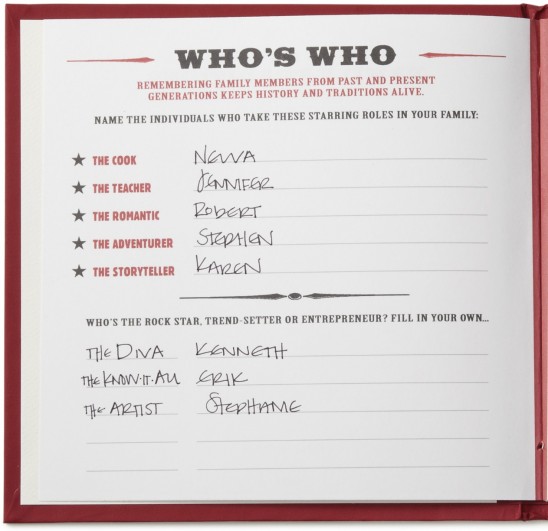 WHO'S WHO
REMEMBERING FAMILY MEMBERS FROM PAST AND PRESENT
GENERATIONS KEEPS HISTORY AND TRADITIONS ALIVE.
NAME THE INDIVIDUALS WHO TAKE THESE STARRING ROLES IN YOUR FAMILY:
★ THE COOK NEWA
★ THE TEACHER JENNIFER
★ THE ROMANTIC ROBERT
★ THE ADVENTURER STEPHEN
★ THE STORYTELLER KAREN
WHO'S THE ROCK STAR, TREND-SETTER OR ENTREPRENEUR? FILL IN YOUR OWN...
THE DIVA KENNETH
THE KNOW-IT-ALL ERIK
THE ARTIST STEPHANIE